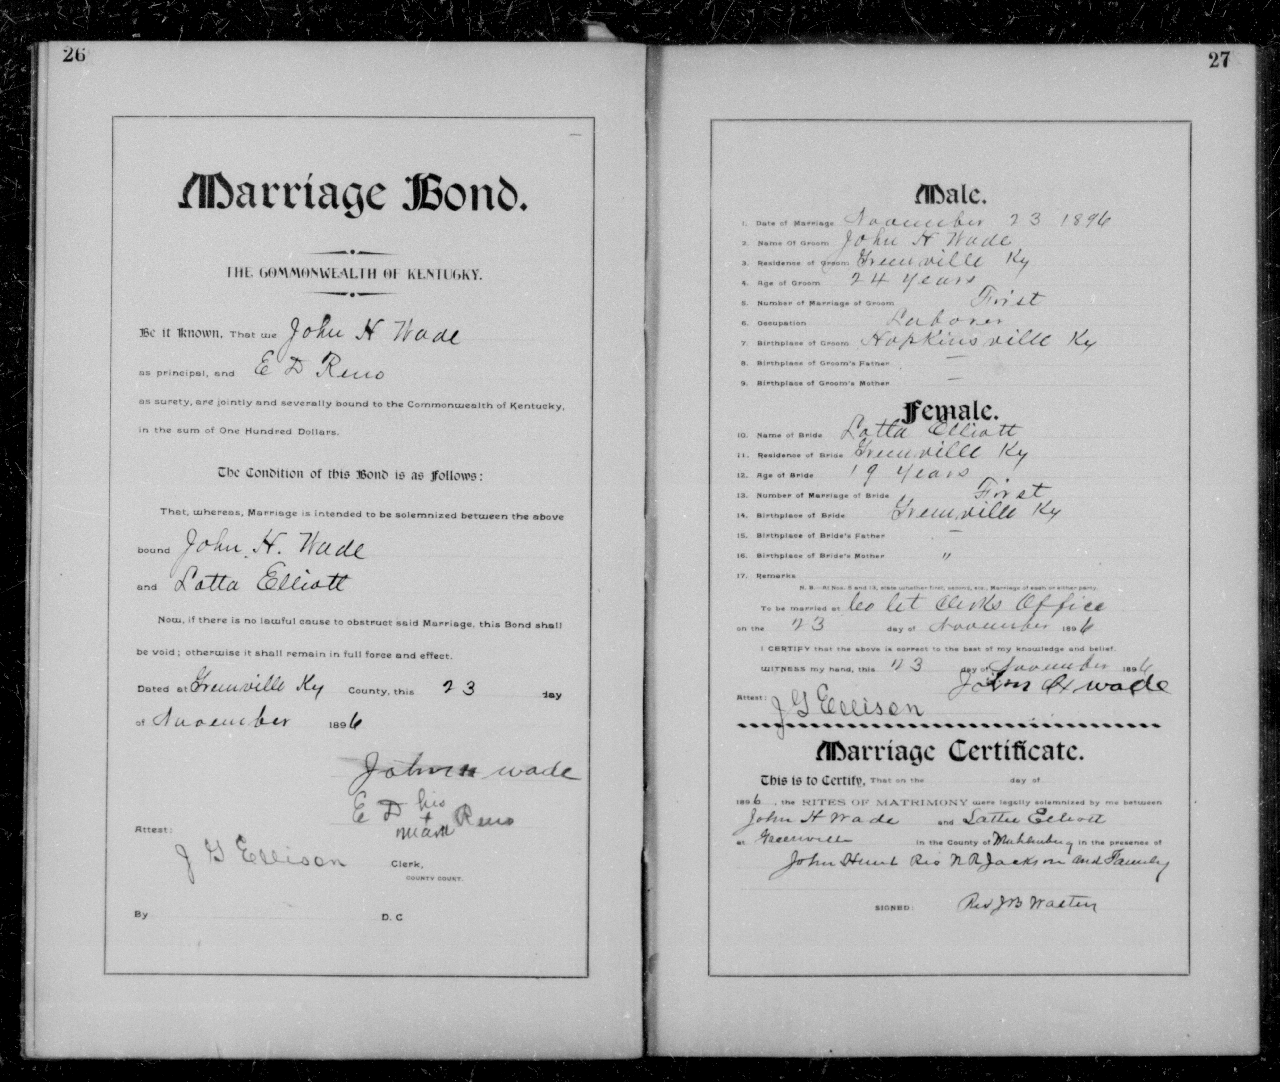 26
Marriage Bond.
THE COMMONWEALTH OF KENTUCKY.
Be it Known, That we John H Wade
as principal, and E D Reno
as surety, are jointly and severally bound to the Commonwealth of Kentucky,
in the sum of One Hundred Dollars.
The Condition of this Bond is as Follows:
That, whereas, Marriage is intended to be solemnized between the above
bound John H. Wade
and Lotta Elliott
Now, if there is no lawful cause to obstruct said Marriage, this Bond shall
be void; otherwise it shall remain in full force and effect.
Dated at Greenville Ky County, this 23 day
of November 1896
John H wade
his
E D + Reno
mark
Attest:
J G Ellison Clerk,
COUNTY COURT.
By D. C
27
Male.
1. Date of Marriage November 23 1896
2. Name Of Groom John H Wade
3. Residence of Groom Greenville Ky
4. Age of Groom 24 years
5. Number of Marriage of Groom First
6. Occupation Laborer
7. Birthplace of Groom Hopkinsville Ky
8. Birthplace of Groom's Father —
9. Birthplace of Groom's Mother —
Female.
10. Name of Bride Lotta Elliott
11. Residence of Bride Greenville Ky
12. Age of Bride 19 years
13. Number of Marriage of Bride First
14. Birthplace of Bride Greenville Ky
15. Birthplace of Bride's Father —
16. Birthplace of Bride's Mother "
17. Remarks
N. B.—At Nos. 5 and 13, state whether first, second, etc., Marriage of each or either party.
To be married at Co Cct Clerks Office
on the 23 day of November 1896
I CERTIFY that the above is correct to the best of my knowledge and belief.
WITNESS my hand, this 23 day of November 1896
John H wade
Attest:
J G Ellison
Marriage Certificate.
This is to Certify, That on the day of
1896, the RITES OF MATRIMONY were legally solemnized by me between
John H Wade and Lattie Elliott
at Greenville in the County of Muhlenburg in the presence of
John Hunt N R Jackson and Family
SIGNED: Rev J B Walten